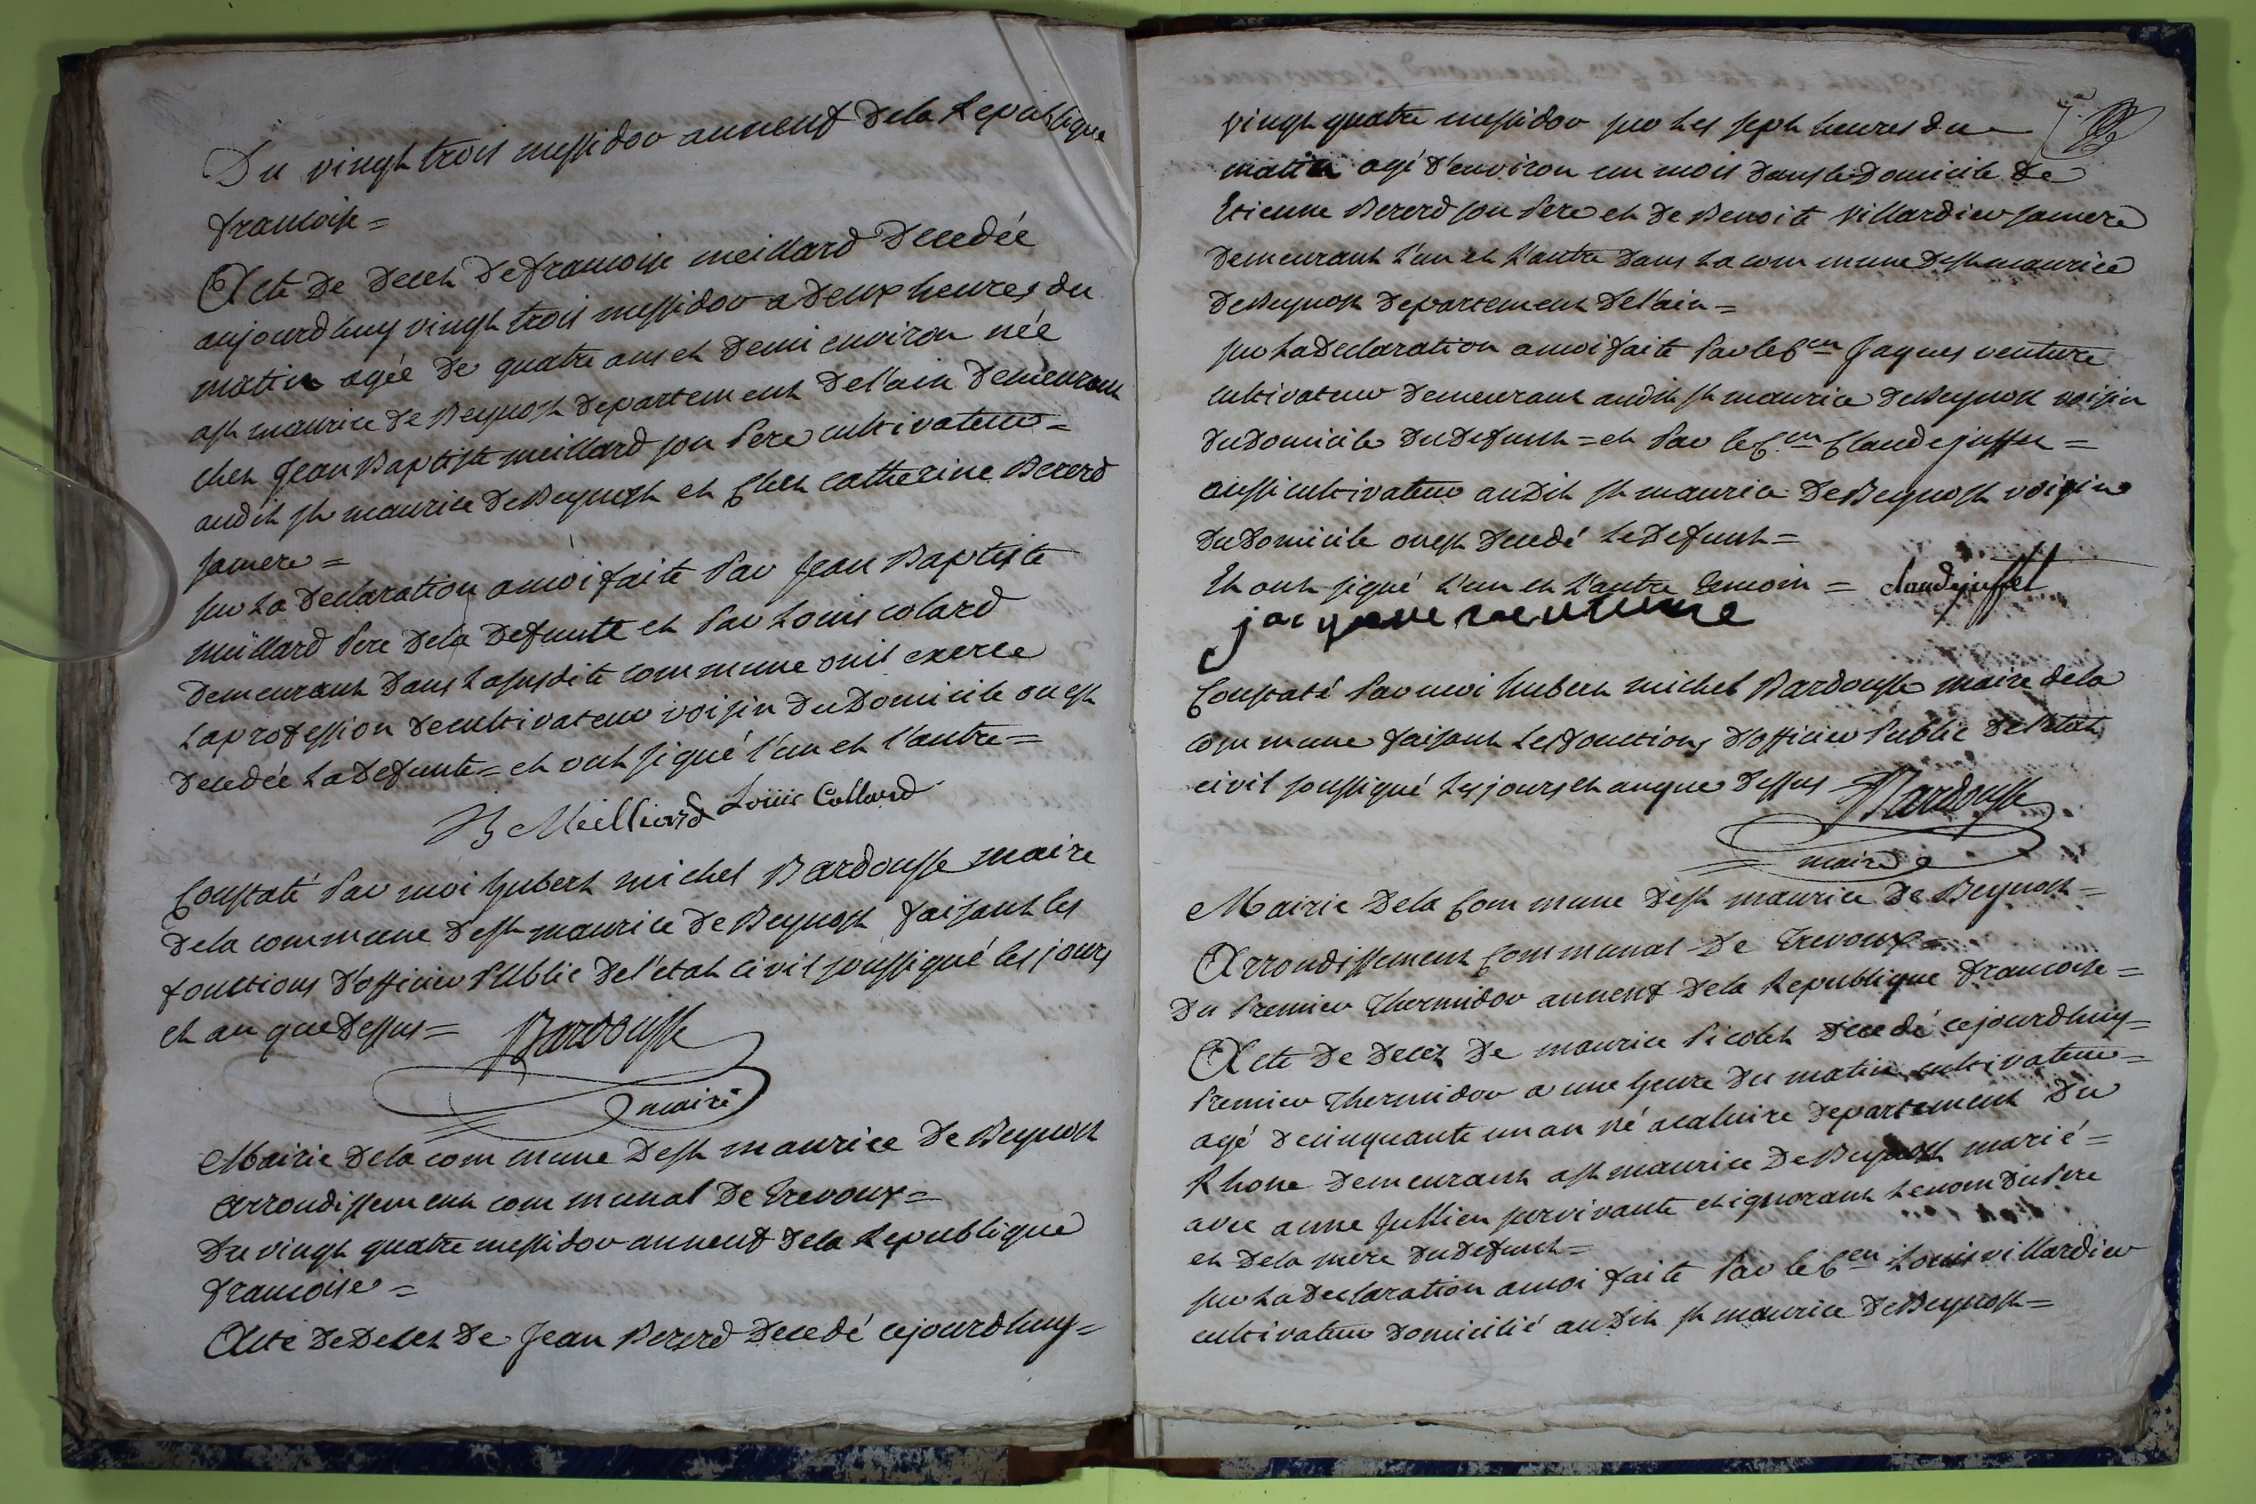 Du vingt trois messidor an neuf dela Republique
francoise =
Acte De Deces De francoise meillard Decedée
aujourdhuy vingt trois messidor a Deux heures du
matin agée de quatre ans et Demi environ née
a st maurice de Beynost Departement de l'ain Demeurant
chez Jean Baptiste meillard son Pere cultivateur =
audit st maurice de Beynost et chez catherine Bererd
sa mere =
sur La Declaration a moi faite Par Jean Baptiste
meillard Pere dela Defunte et Par Louis colard
Demeurant Dans La susdite commune ou il exerce
La profession de cultivateur voisin Du Domicile ou est
Decedée La Defunte = et ont signé l'un et l'autre =
JB Meilliard Louis Collard
Constaté Par moi hubert michel Bardousse maire
dela commune de st maurice de Beynost faisant les
fonctions d'officier Public de l'etat civil soussigné les jours
et an que Dessus = Bardousse
maire
Mairie dela commune De st maurice de Beynost
arrondissement communal De Trevoux =
Du vingt quatre messidor an neuf dela Republique
francoise =
Acte De Deces De Jean Bererd Decedé cejourdhuy =
vingt quatre messidor sur les sept heures du
matin agé d'environ un mois dans le Domicile de
Etienne Bererd son Pere et de Benoite Villardier sa mere
Demeurant l'un et L'autre Dans La commune de st maurice
de Beynost Departement de l'ain =
sur La Declaration a moi faite Par le Cen Jaques venture
cultivateur Demeurant audit st maurice de Beynost voisin
Du Domicile Du Defunt = et Par le Cen Claude juffet =
aussi cultivateur audit st maurice De Beynost voisin
Du Domicile ou est Decedé Le Defunt =
Et ont signé L'un et L'autre temoin = claude juffet
jacque venture
Constaté Par moi hubert michel Bardousse maire dela
commune faisant Les fonctions d'officier Public de l'etat
civil soussigné Les jours et an que Dessus Bardousse
maire
Mairie Dela Commune De st maurice de Beynost =
Arrondissement Communal De Trevoux =
Du Premier Thermidor an neuf Dela Republique francoise =
Acte De Decez De maurice Picolet Decedé cejourdhuy =
Premier Thermidor a une heure Du matin cultivateur =
agé de cinquante un an né a caluire Departement Du
Rhone Demeurant a st maurice De Beynost marié =
avec anne Jullien survivante et ignorant Le nom du Pere
et Dela mere Du Defunt =
sur La Declaration a moi faite Par le Cen Louis villardier
cultivateur Domicilié audit st maurice De Beynost =